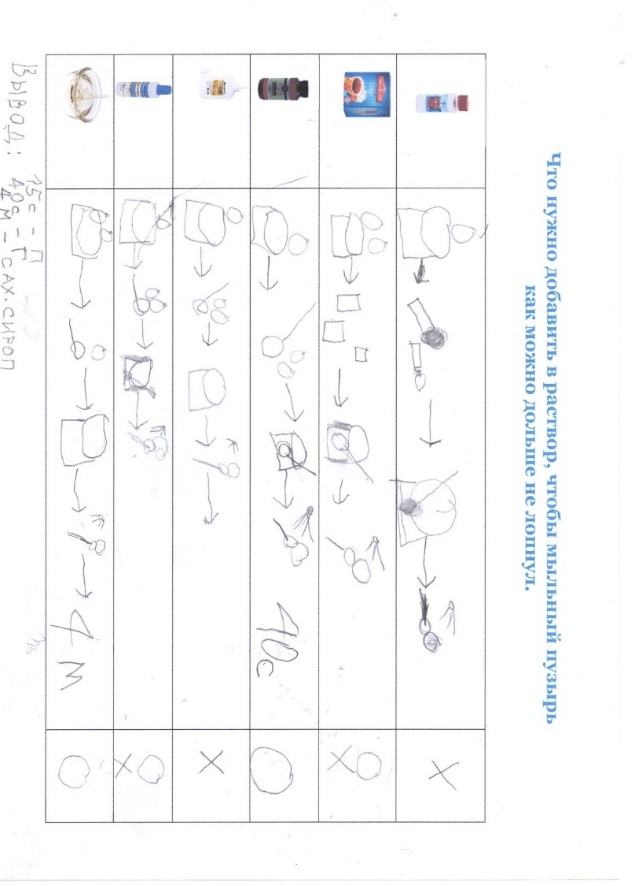 Что нужно добавить в раствор, чтобы мыльный пузырь
как можно дольше не лопнул.
40с
4 м
Вывод: 15с = П
40с = Г
4м - сах. сироп